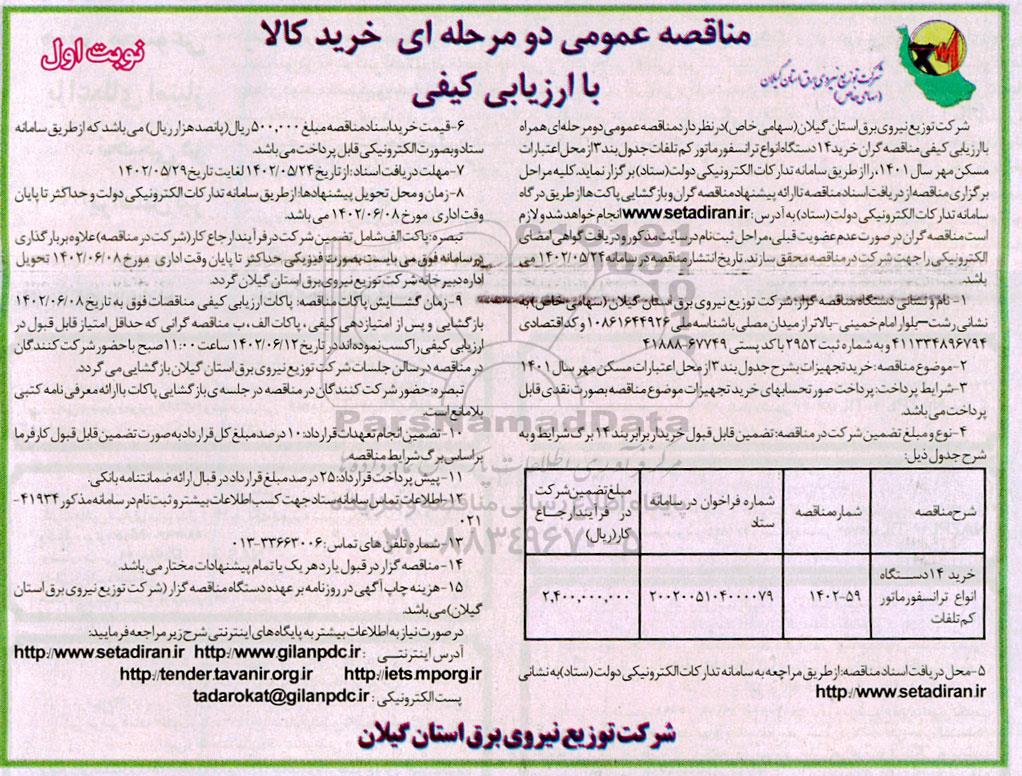 مناقصه عمومی دو مرحله ای خرید کالا
با ارزیابی کیفی
نوبت اول
شرکت توزیع نیروی برق استان گیلان
(سهامی خاص)
شرکت توزیع نیروی برق استان گیلان (سهامی خاص) در نظر دارد مناقصه عمومی دو مرحله ای همراه
با ارزیابی کیفی مناقصه گران خرید ۱۴ دستگاه انواع ترانسفورماتور کم تلفات جدول بند ۳ از محل اعتبارات
مسکن مهر سال ۱۴۰۱، را از طریق سامانه تدارکات الکترونیکی دولت (ستاد) برگزار نماید. کلیه مراحل
برگزاری مناقصه از دریافت اسناد مناقصه تا ارائه پیشنهاد مناقصه گران و بازگشایی پاکت ها از طریق درگاه
سامانه تدارکات الکترونیکی دولت (ستاد) به آدرس: www.setadiran.ir انجام خواهد شد و لازم
است مناقصه گران در صورت عدم عضویت قبلی، مراحل ثبت نام در سایت مذکور و دریافت گواهی امضای
الکترونیکی را جهت شرکت در مناقصه محقق سازند. تاریخ انتشار مناقصه در سامانه ۱۴۰۲/۰۵/۲۴ می
باشد.
۱- نام و نشانی دستگاه مناقصه گزار: شرکت توزیع نیروی برق استان گیلان (سهامی خاص) به
نشانی رشت-بلوار امام خمینی-بالاتر از میدان مصلی با شناسه ملی ۱۰۸۶۱۶۴۴۹۲۶ و کد اقتصادی
۴۱۱۳۳۴۸۹۶۷۹۴ و به شماره ثبت ۲۹۵۲ با کد پستی ۶۷۷۴۹-۴۱۸۸۸
۲-موضوع مناقصه: خرید تجهیزات بشرح جدول بند ۳ از محل اعتبارات مسکن مهر سال ۱۴۰۱
۳-شرایط پرداخت: پرداخت صورتحسابهای خرید تجهیزات موضوع مناقصه بصورت نقدی قابل
پرداخت می باشد.
۴-نوع و مبلغ تضمین شرکت در مناقصه: تضمین قابل قبول خریدار برابر بند ۱۴ برگ شرایط و به
شرح جدول ذیل:
شرح مناقصه
شماره مناقصه
شماره فراخوان در سامانه ستاد
مبلغ تضمین شرکت در فرآیند ارجاع کار (ریال)
خرید ۱۴ دستگاه انواع ترانسفورماتور کم تلفات
۱۴۰۲-۵۹
۲۰۰۲۰۰۵۱۰۴۰۰۰۰۷۹
۲,۴۰۰,۰۰۰,۰۰۰
۵-محل دریافت اسناد مناقصه: از طریق مراجعه به سامانه تدارکات الکترونیکی دولت (ستاد) به نشانی
http://www.setadiran.ir
۶-قیمت خرید اسناد مناقصه مبلغ ۵۰۰,۰۰۰ ریال (پانصد هزار ریال) می باشد که از طریق سامانه
ستاد و بصورت الکترونیکی قابل پرداخت می باشد.
۷-مهلت دریافت اسناد: از تاریخ ۱۴۰۲/۰۵/۲۴ لغایت تاریخ ۱۴۰۲/۰۵/۲۹
۸-زمان و محل تحویل پیشنهادها: از طریق سامانه تدارکات الکترونیکی دولت و حداکثر تا پایان
وقت اداری مورخ ۱۴۰۲/۰۶/۰۸ می باشد.
تبصره: پاکت الف شامل تضمین شرکت در فرآیند ارجاع کار (شرکت در مناقصه) علاوه بر بارگذاری
در سامانه فوق می بایست بصورت فیزیکی حداکثر تا پایان وقت اداری مورخ ۱۴۰۲/۰۶/۰۸ تحویل
اداره دبیرخانه شرکت توزیع نیروی برق استان گیلان گردد.
۹-زمان گشایش پاکات مناقصه: پاکات ارزیابی کیفی مناقصات فوق به تاریخ ۱۴۰۲/۰۶/۰۸
بازگشایی و پس از امتیازدهی کیفی، پاکات الف، ب مناقصه گرانی که حداقل امتیاز قابل قبول در
ارزیابی کیفی را کسب نموده اند در تاریخ ۱۴۰۲/۰۶/۱۲ ساعت ۱۱:۰۰ صبح با حضور شرکت کنندگان
در مناقصه در سالن جلسات شرکت توزیع نیروی برق استان گیلان بازگشایی می گردد.
تبصره: حضور شرکت کنندگان در مناقصه در جلسه ی بازگشایی پاکات با ارائه معرفی نامه کتبی
بلامانع است.
۱۰-تضمین انجام تعهدات قرارداد: ۱۰ درصد مبلغ کل قرارداد به صورت تضمین قابل قبول کارفرما
بر اساس برگ شرایط مناقصه.
۱۱- پیش پرداخت قرارداد: ۲۵ درصد مبلغ قرارداد در قبال ارائه ضمانتنامه بانکی.
۱۲-اطلاعات تماس سامانه ستاد جهت کسب اطلاعات بیشتر و ثبت نام در سامانه مذکور ۴۱۹۳۴-
۰۲۱
۱۳-شماره تلفن های تماس: ۳۳۶۶۳۰۰۶-۰۱۳
۱۴- مناقصه گزار در قبول یا رد هر یک یا تمام پیشنهادات مختار می باشد.
۱۵-هزینه چاپ آگهی در روزنامه بر عهده دستگاه مناقصه گزار (شرکت توزیع نیروی برق استان
گیلان) می باشد.
در صورت نیاز به اطلاعات بیشتر به پایگاه های اینترنتی شرح زیر مراجعه فرمایید:
آدرس اینترنتی: http://www.gilanpdc.ir http://www.setadiran.ir
http://iets.mporg.ir http://tender.tavanir.org.ir
پست الکترونیکی: tadarokat@gilanpdc.ir
شرکت توزیع نیروی برق استان گیلان
ParsNamadData